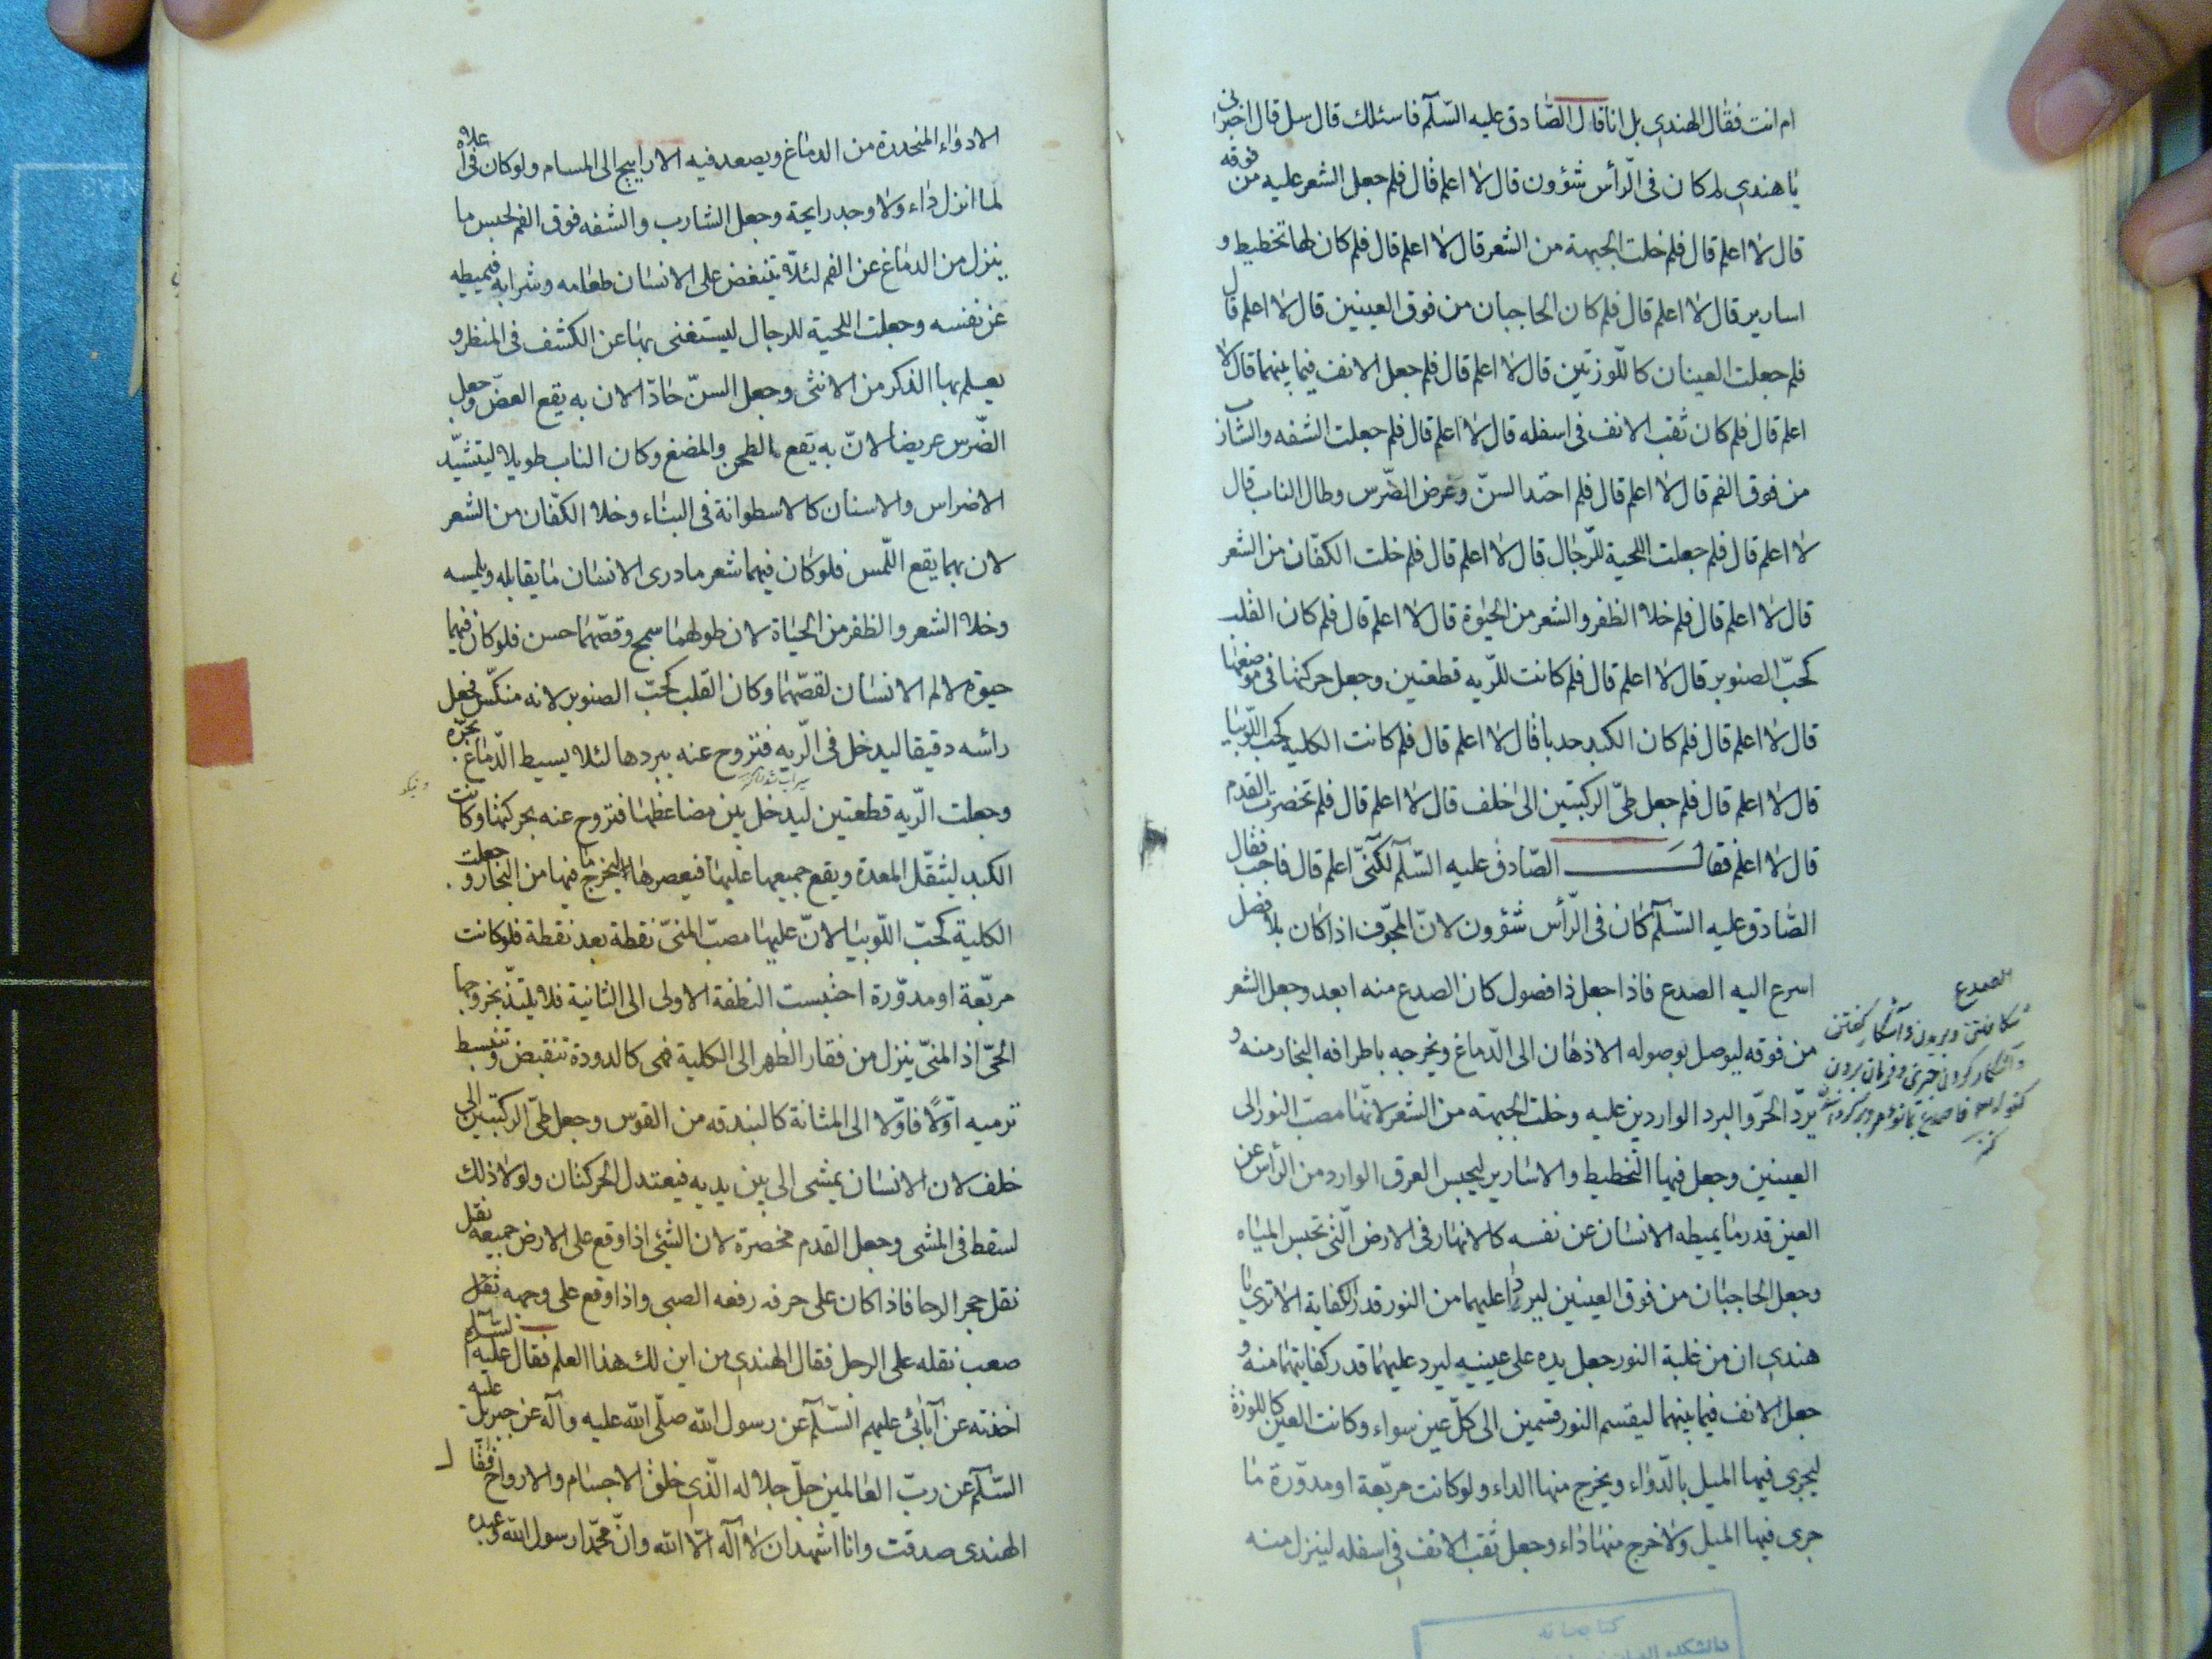 ام انت فقال الهندي بل انا قال الصّادق عليه السّلام فاسئلك قال سل قال اخبرنى
يا هندي لم كان فى الرّأس شؤون قال لا اعلم قال فلم جعل الشعر عليه من فوقه
قال لا اعلم قال فلم خلت الجبهة من الشعر قال لا اعلم قال فلم كان لها تخطيط و
اسارير قال لا اعلم قال فلم كان الحاجبان من فوق العينين قال لا اعلم قال
فلم جعلت العينان كاللّوزتين قال لا اعلم قال فلم جعل الانف فيما بينهما قال لا
اعلم قال فلم كان ثقب الانف فى اسفله قال لا اعلم قال فلم جعلت الشفه والشارب
من فوق الفم قال لا اعلم قال فلم احتد السنّ وعرض الضّرس وطال الناب قال
لا اعلم قال فلم جعلت اللحية للرّجال قال لا اعلم قال فلم خلت الكفّان من الشعر
قال لا اعلم قال فلم خلا الظفر والشعر من الحيوة قال لا اعلم قال فلم كان القلب
كحبّ الصنوبر قال لا اعلم قال فلم كانت للرّيه قطعتين وجعل حركتها فى موضعها
قال لا اعلم قال فلم كان الكبد حدبا قال لا اعلم قال فلم كانت الكليه كحبّ اللّوبيا
قال لا اعلم قال فلم جعل طىّ الركبتين الى خلف قال لا اعلم قال فلم تخصرت القدم
قال لا اعلم فقال الصّادق عليه السّلام لكنّى اعلم قال فاجب فقال
الصّادق عليه السّلام كان فى الرّأس شؤون لانّ المجوّف اذا كان بلا فصل
اسرع اليه الصدع فاذا جعل ذا فصول كان الصدع منه ابعد وجعل الشعر
من فوقه ليوصل بوصوله الاذهان الى الدّماغ ويخرجه باطرافه البخار منه و
يردّ الحرّ والبرد الواردين عليه وخلت الجبهة من الشعر لانّها مصبّ النور الى
العينين وجعل فيها التّخطيط والاسارير ليحبس العرق الوارد من الرأس عن
العين قدر ما يميطه الانسان عن نفسه كالانهار فى الارض الّتى تحبس المياه
وجعل الحاجبان من فوق العينين ليردا عليهما من النور قدر الكفاية الا ترى يا
هندي ان من غلبة النور جعل يده على عينيه ليرد عليهما قدر كفايتهما منه و
جعل الانف فيما بينهما ليقسم النور قسمين الى كلّ عين سواء وكانت العين كاللوزة
ليجرى فيها الميل بالدّواء ويخرج منها الداء ولو كانت مربّعة او مدوّرة ما
جرى فيها الميل ولا خرج منها داء وجعل ثقب الانف فى اسفله لينزل منه
الصدع
كتابخانه
الادواء المنحدرة من الدماغ ويصعد فيه الاراييح الى المسام ولو كان فى اعلاه
لما انزل داء ولا وجد رايحة وجعل الشارب والشفه فوق الفم لحبس ما
ينزل من الدماغ عن الفم لئلّا يتنغض على الانسان طعامه وشرابه فيميطه
عن نفسه وجعلت اللحية للرجال ليستغنى بها عن الكشف فى المنظر و
يعلم بها الذكر من الانثى وجعل السنّ حادّا لان به يقع العضّ وجعل
الضّرس عريضا لانّ به يقع الطحن والمضغ وكان الناب طويلا ليتشيّد
الاضراس والاسنان كالاسطوانة فى البناء وخلا الكفّان من الشعر
لان بهما يقع اللّمس فلو كان فيهما شعر ما درى الانسان ما يقابله ويلمسه
وخلا الشعر والظفر من الحياة لان طولهما سمج وقصّهما حسن فلو كان فيهما
حيوة لالم الانسان لقصّهما وكان القلب كحبّ الصنوبر لانه منكّس فجعل
رأسه دقيقا ليدخل فى الرّيه فتروح عنه ببردها لئلا يسيط الدّماغ بحرّه
وجعلت الرّيه قطعتين ليدخل بين مضاغطها فتروح عنه بحركتها وكانت
الكبد ليثقّل المعدة ويقع جميعها عليها فيعصرها ليخرج ما فيها من البخار وجعلت
الكلية كحبّ اللّوبيا لانّ عليها مصبّ المنىّ نقطة بعد نقطة فلو كانت
مربّعة او مدوّرة احتبست النطفة الاولى الى الثانية فلا يلتذّ بخروجها
الحىّ اذ المنىّ ينزل من فقار الظهر الى الكلية فهى كالدودة تنقبض وتنبسط
ترميه اوّلا فاوّلا الى المثانة كالبندقه من القوس وجعل طىّ الركبتين الى
خلف لان الانسان يمشى الى بين يديه فيعتدل الحركتان ولولا ذلك
لسقط فى المشى وجعل القدم مخصرة لان الشئى اذا وقع على الارض جميعه ثقل
ثقل حجر الرحا فاذا كان على حرفه رفعه الصبى واذا وقع على وجهه ثقل
صعب نقله على الرجل فقال الهندي من اين لك هذا العلم فقال عليه السّلام
اخذته عن آبائى عليهم السّلام عن رسول الله صلّى الله عليه وآله عن جبريل عليه
السّلام عن ربّ العالمين جلّ جلاله الّذي خلق الاجسام والارواح فقال
الهندى صدقت وانا اشهد ان لا اله الّا الله وانّ محمّدا رسول الله وعبده